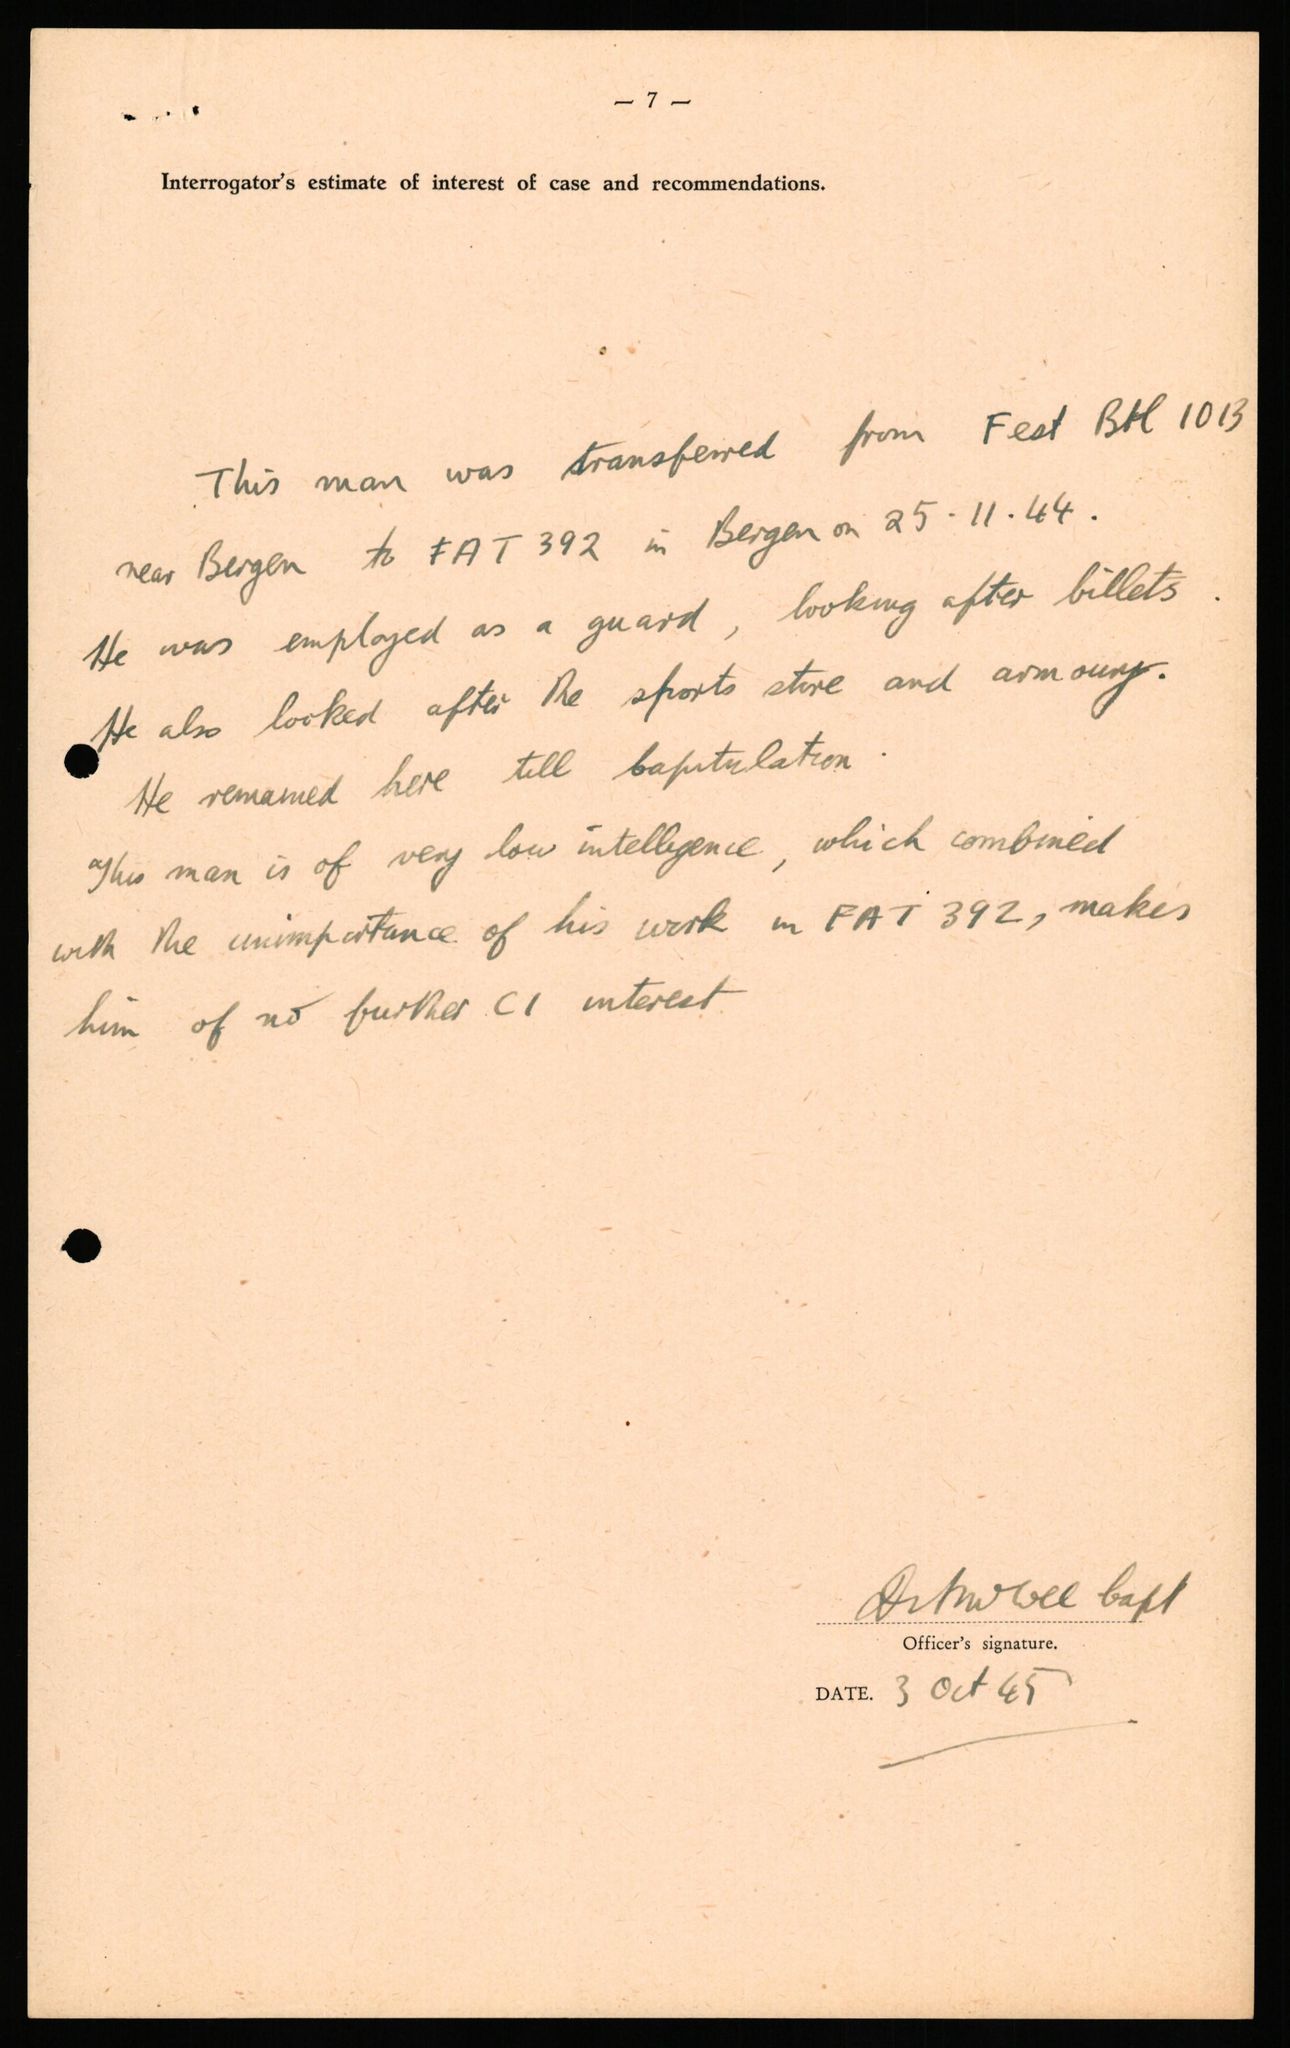 — 7 —
Interrogator's estimate of interest of case and recommendations.
This man was transferred from Fest Btl 1013
near Bergen to FAT 392 in Bergen on 25.11.44.
He was employed as a guard, looking after billets.
He also looked after the sports store and armoury.
He remained here till Capitulation.
This man is of very low intelligence, which combined
with the unimportance of his work in FAT 392, makes
him of no further CI interest
Capt
Officer's signature.
DATE. 3 Oct 45